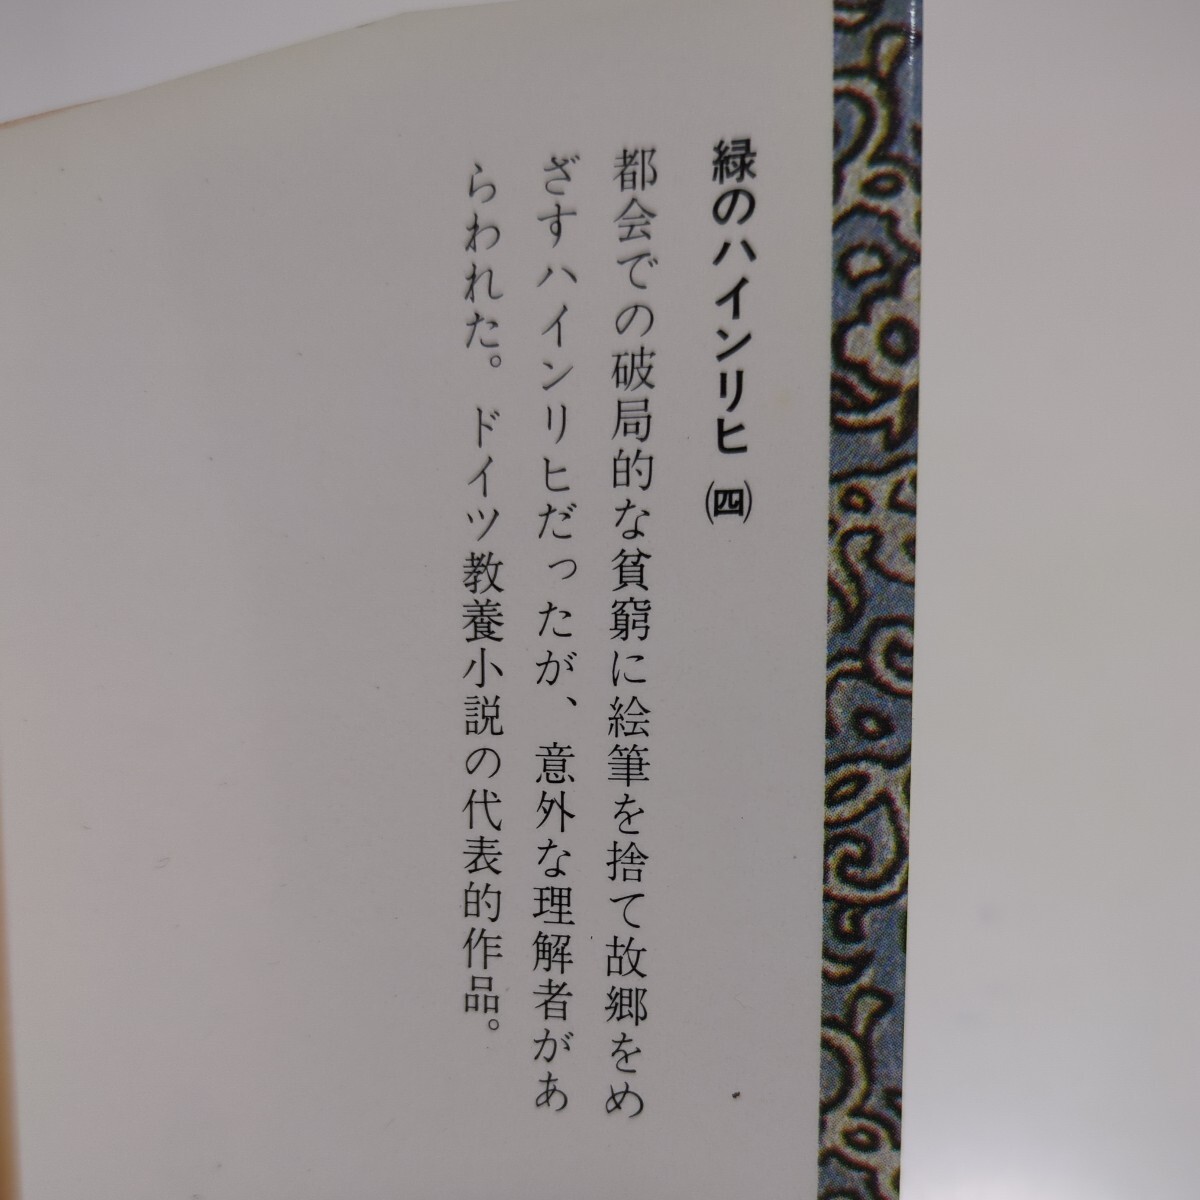 緑のハインリヒ㈣
都会での破局的な貧窮に絵筆を捨て故郷をめ
ざすハインリヒだったが、意外な理解者があ
らわれた。ドイツ教養小説の代表的作品。